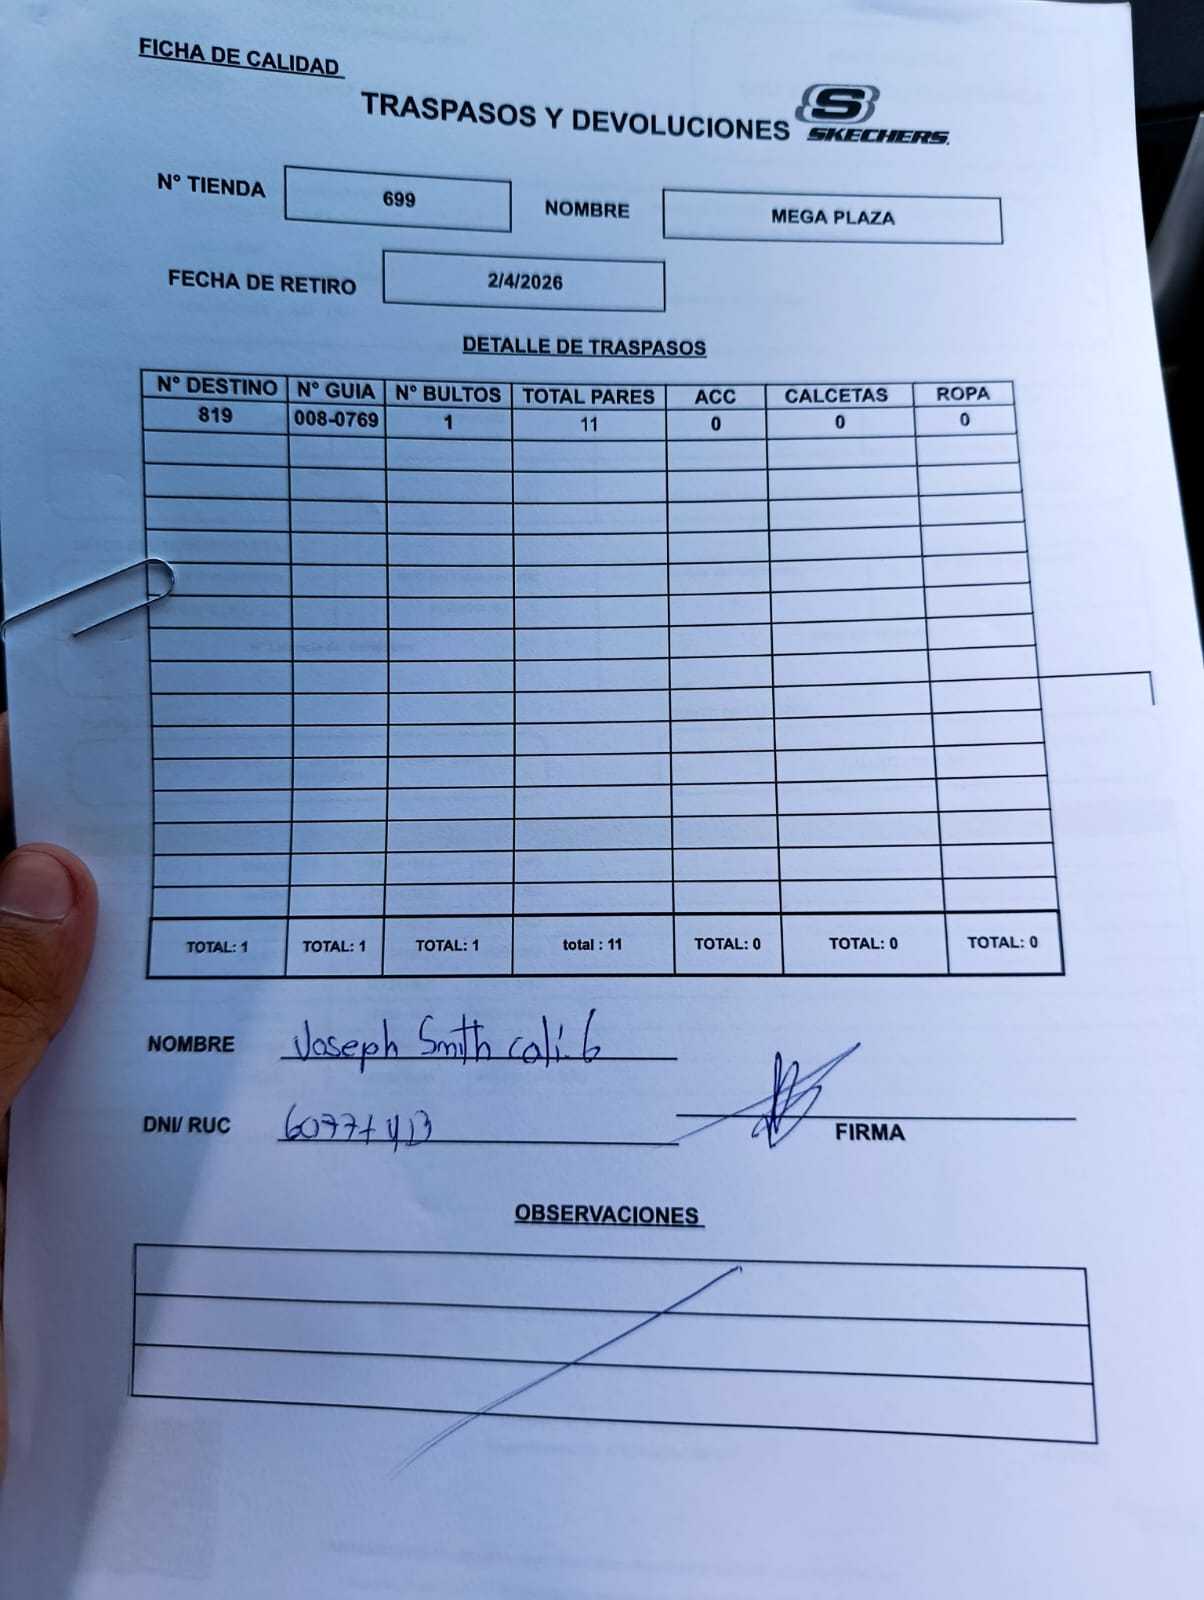 FICHA DE CALIDAD
TRASPASOS Y DEVOLUCIONES S SKECHERS
N° TIENDA 699 NOMBRE MEGA PLAZA
FECHA DE RETIRO 2/4/2026
DETALLE DE TRASPASOS
N° DESTINO N° GUIA N° BULTOS TOTAL PARES ACC CALCETAS ROPA
819 008-0769 1 11 0 0 0
TOTAL: 1 TOTAL: 1 TOTAL: 1 total : 11 TOTAL: 0 TOTAL: 0 TOTAL: 0
NOMBRE Joseph Smith
DNI/ RUC
FIRMA
OBSERVACIONES